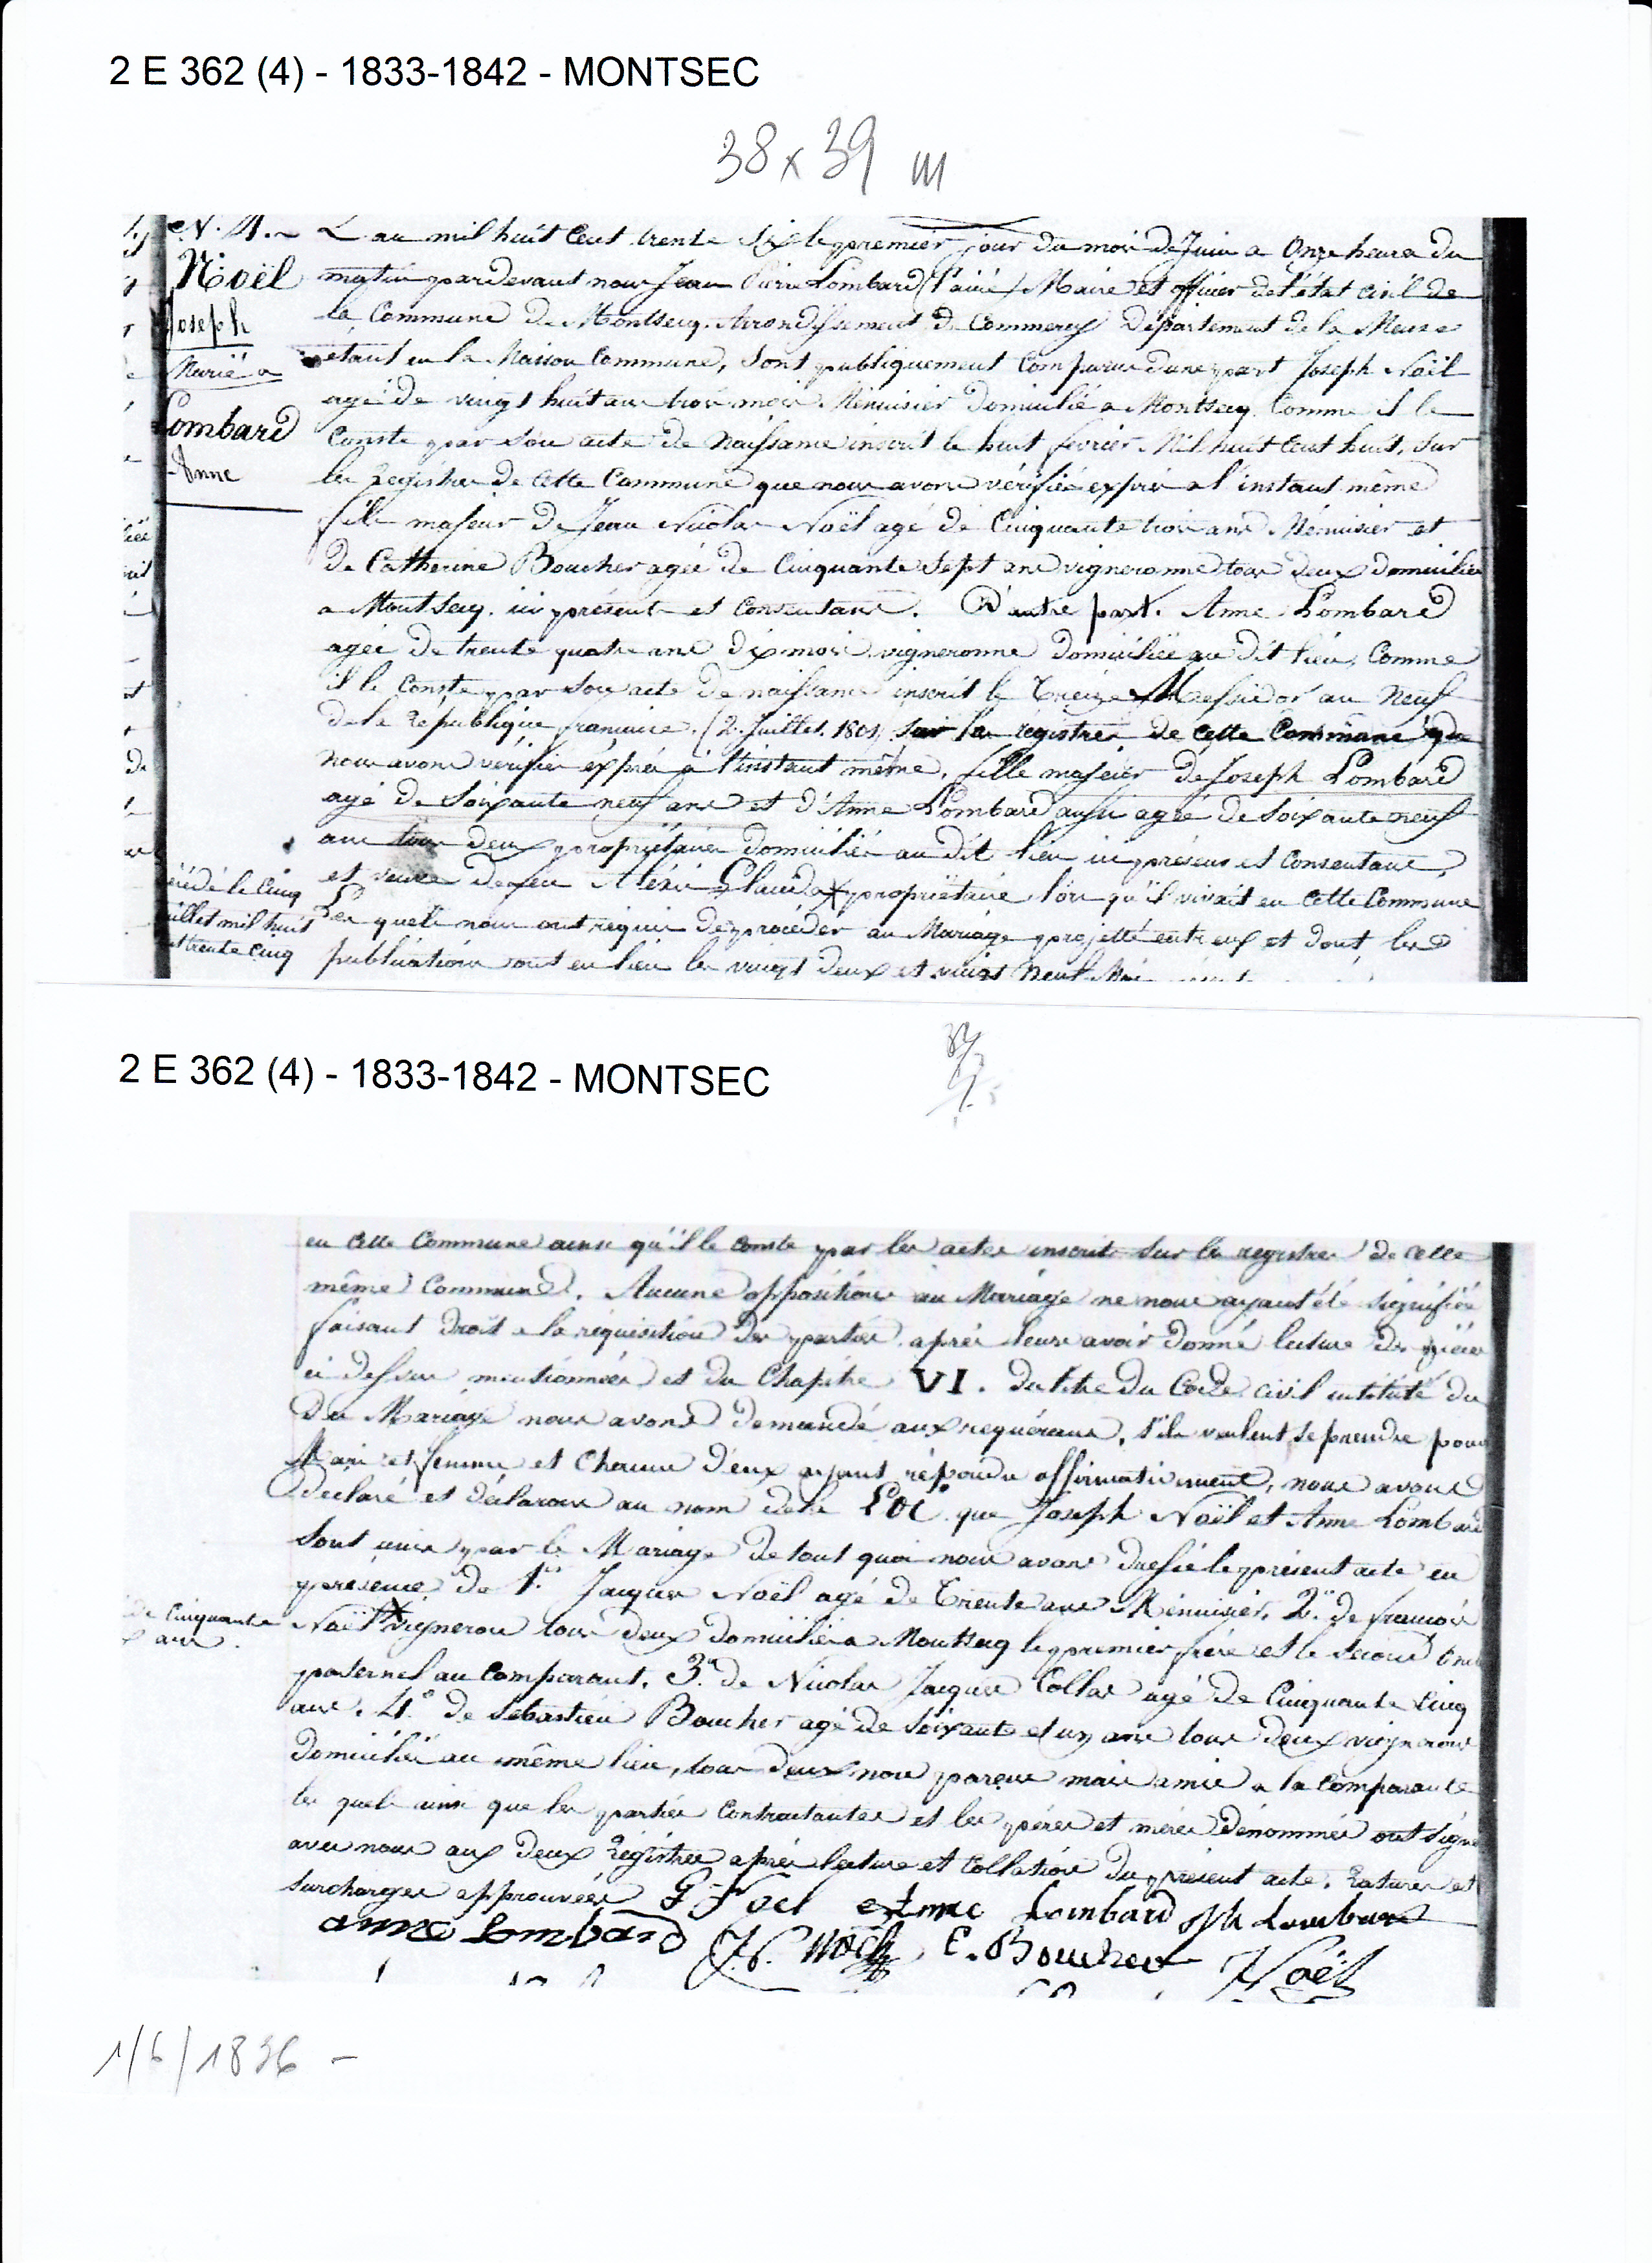 2 E 362 (4) - 1833-1842 - MONTSEC
38 x 39 m
N. 4.
Noël
Joseph
Marié a
Lombard
Anne
L'an mil huit Cent trente Six le premier jour du mois de Juin a Onze heures du
matin pardevant nous Jean Pierre Lombard (l'ainé) Maire et officier de l'état civil de
la Commune de Montsecq. Arrondissement de Commercy Département de la Meuse
etant en la Maison Commune, Sont publiquement Comparus d'une part Joseph Noël
agé de vingt huit ans trois mois Menuisier Domicilié a Montsecq. Comme il le
Conste par son acte de Naissance inscrit le huit février Mil huit Cent huit, Sur
les Registres de Cette Commune que nous avons vérifiés exprès a l'instant même
fils majeur de Jean Nicolas Noël agé de Cinquante trois ans Menuisier et
de Catherine Boucher agée de Cinquante Sept ans vigneronne tous deux domiciliés
a Montsecq. ici présents et Consentans. D'autre part. Anne Lombard
agée de trente quatre ans dix mois vigneronne Domiciliée au dit lieu, Comme
il le Conste par son acte de naissance inscrit le Treize Messidor an Neuf
de la République française. (2. Juillet. 1801) Sur les registres de Cette Commune que
nous avons vérifiés exprès à l'instant même, fille majeur de Joseph Lombard
agé de Soixante neuf ans et d'Anne Lombard aussi agée de Soixante neuf
ans tous deux propriétaires domiciliés au dit lieu ici présens et Consentans,
et veuve de feu Alexis Claude x propriétaire lors qu'il vivait en Cette Commune
décédé le Cinq
juillet mil huit
cent trente Cinq
Les quels nous ont requis de procéder au Mariage projetté entr'eux et dont les
publications ont eu lieu les vingt deux et vingt Neuf Mai
2 E 362 (4) - 1833-1842 - MONTSEC
en Cette Commune ainsi qu'il le Conste par les actes inscrits Sur les registres de Cette
même Commune. Aucune opposition au Mariage ne nous ayant été signifiée
faisant Droit a la réquisition des parties après leurs avoir donné lecture des pièces
ci dessus mentionnées et du Chapitre VI. du titre du Code civil intitulé du
Du Mariage nous avons demandé aux requérans, s'ils veulent se prendre pour
Mari et femme et Chacun d'eux ayant répondu affirmativement, nous avons
Déclaré et déclarons au nom de la LOI que Joseph Noël et Anne Lombard
Sont unis par le Mariage de tout quoi nous avons dressé le présent acte en
présence de 1.er Jacques Noël agé de Trente ans Menuisier. 2.e de françois
Noël x vigneron tous deux domiciliés a Montsecq le premier frère et le second oncle
de Cinquante
ans.
paternel au Comparant. 3.e de Nicolas Jacques Collas agé de Cinquante Cinq
ans. 4.e de Sébastien Boucher agé de Soixante et un ans tous deux vignerons
Domiciliés au même lieu, tous deux non parens mais amis a la Comparante
les quels ainsi que les parties Contractantes et les pères et mères Dénommés ont signé
avec nous aux deux Régistres après lecture et Collation du présent acte. Ratures et
Surcharges approuvées
J Noel Anne Lombard Jph Lombard
anne Lombard J. N. Noël C. Boucher J Noël
1/6/1836 -